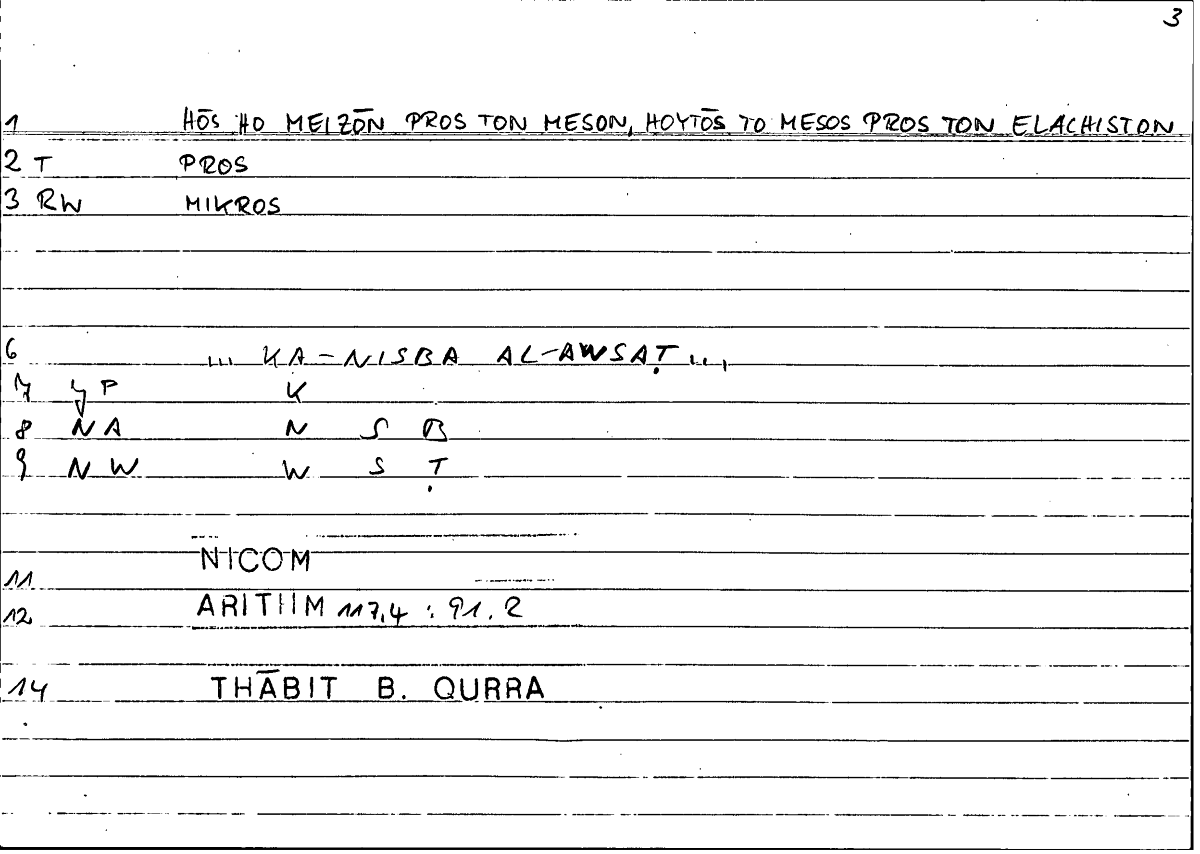 3
1 HŌS HO MEIZŌN PROS TON MESON, HOYTŌS TO MESOS PROS TON ELACHISTON
2 T PROS
3 RW MIKROS
6 ... KA-NISBA AL-AWSAṬ ...,
7 P K
8 NA N S B
9 NW W S Ṭ
NICOM
11
12 ARITIIM 117,4 : 91.2
14 THĀBIT B. QURRA